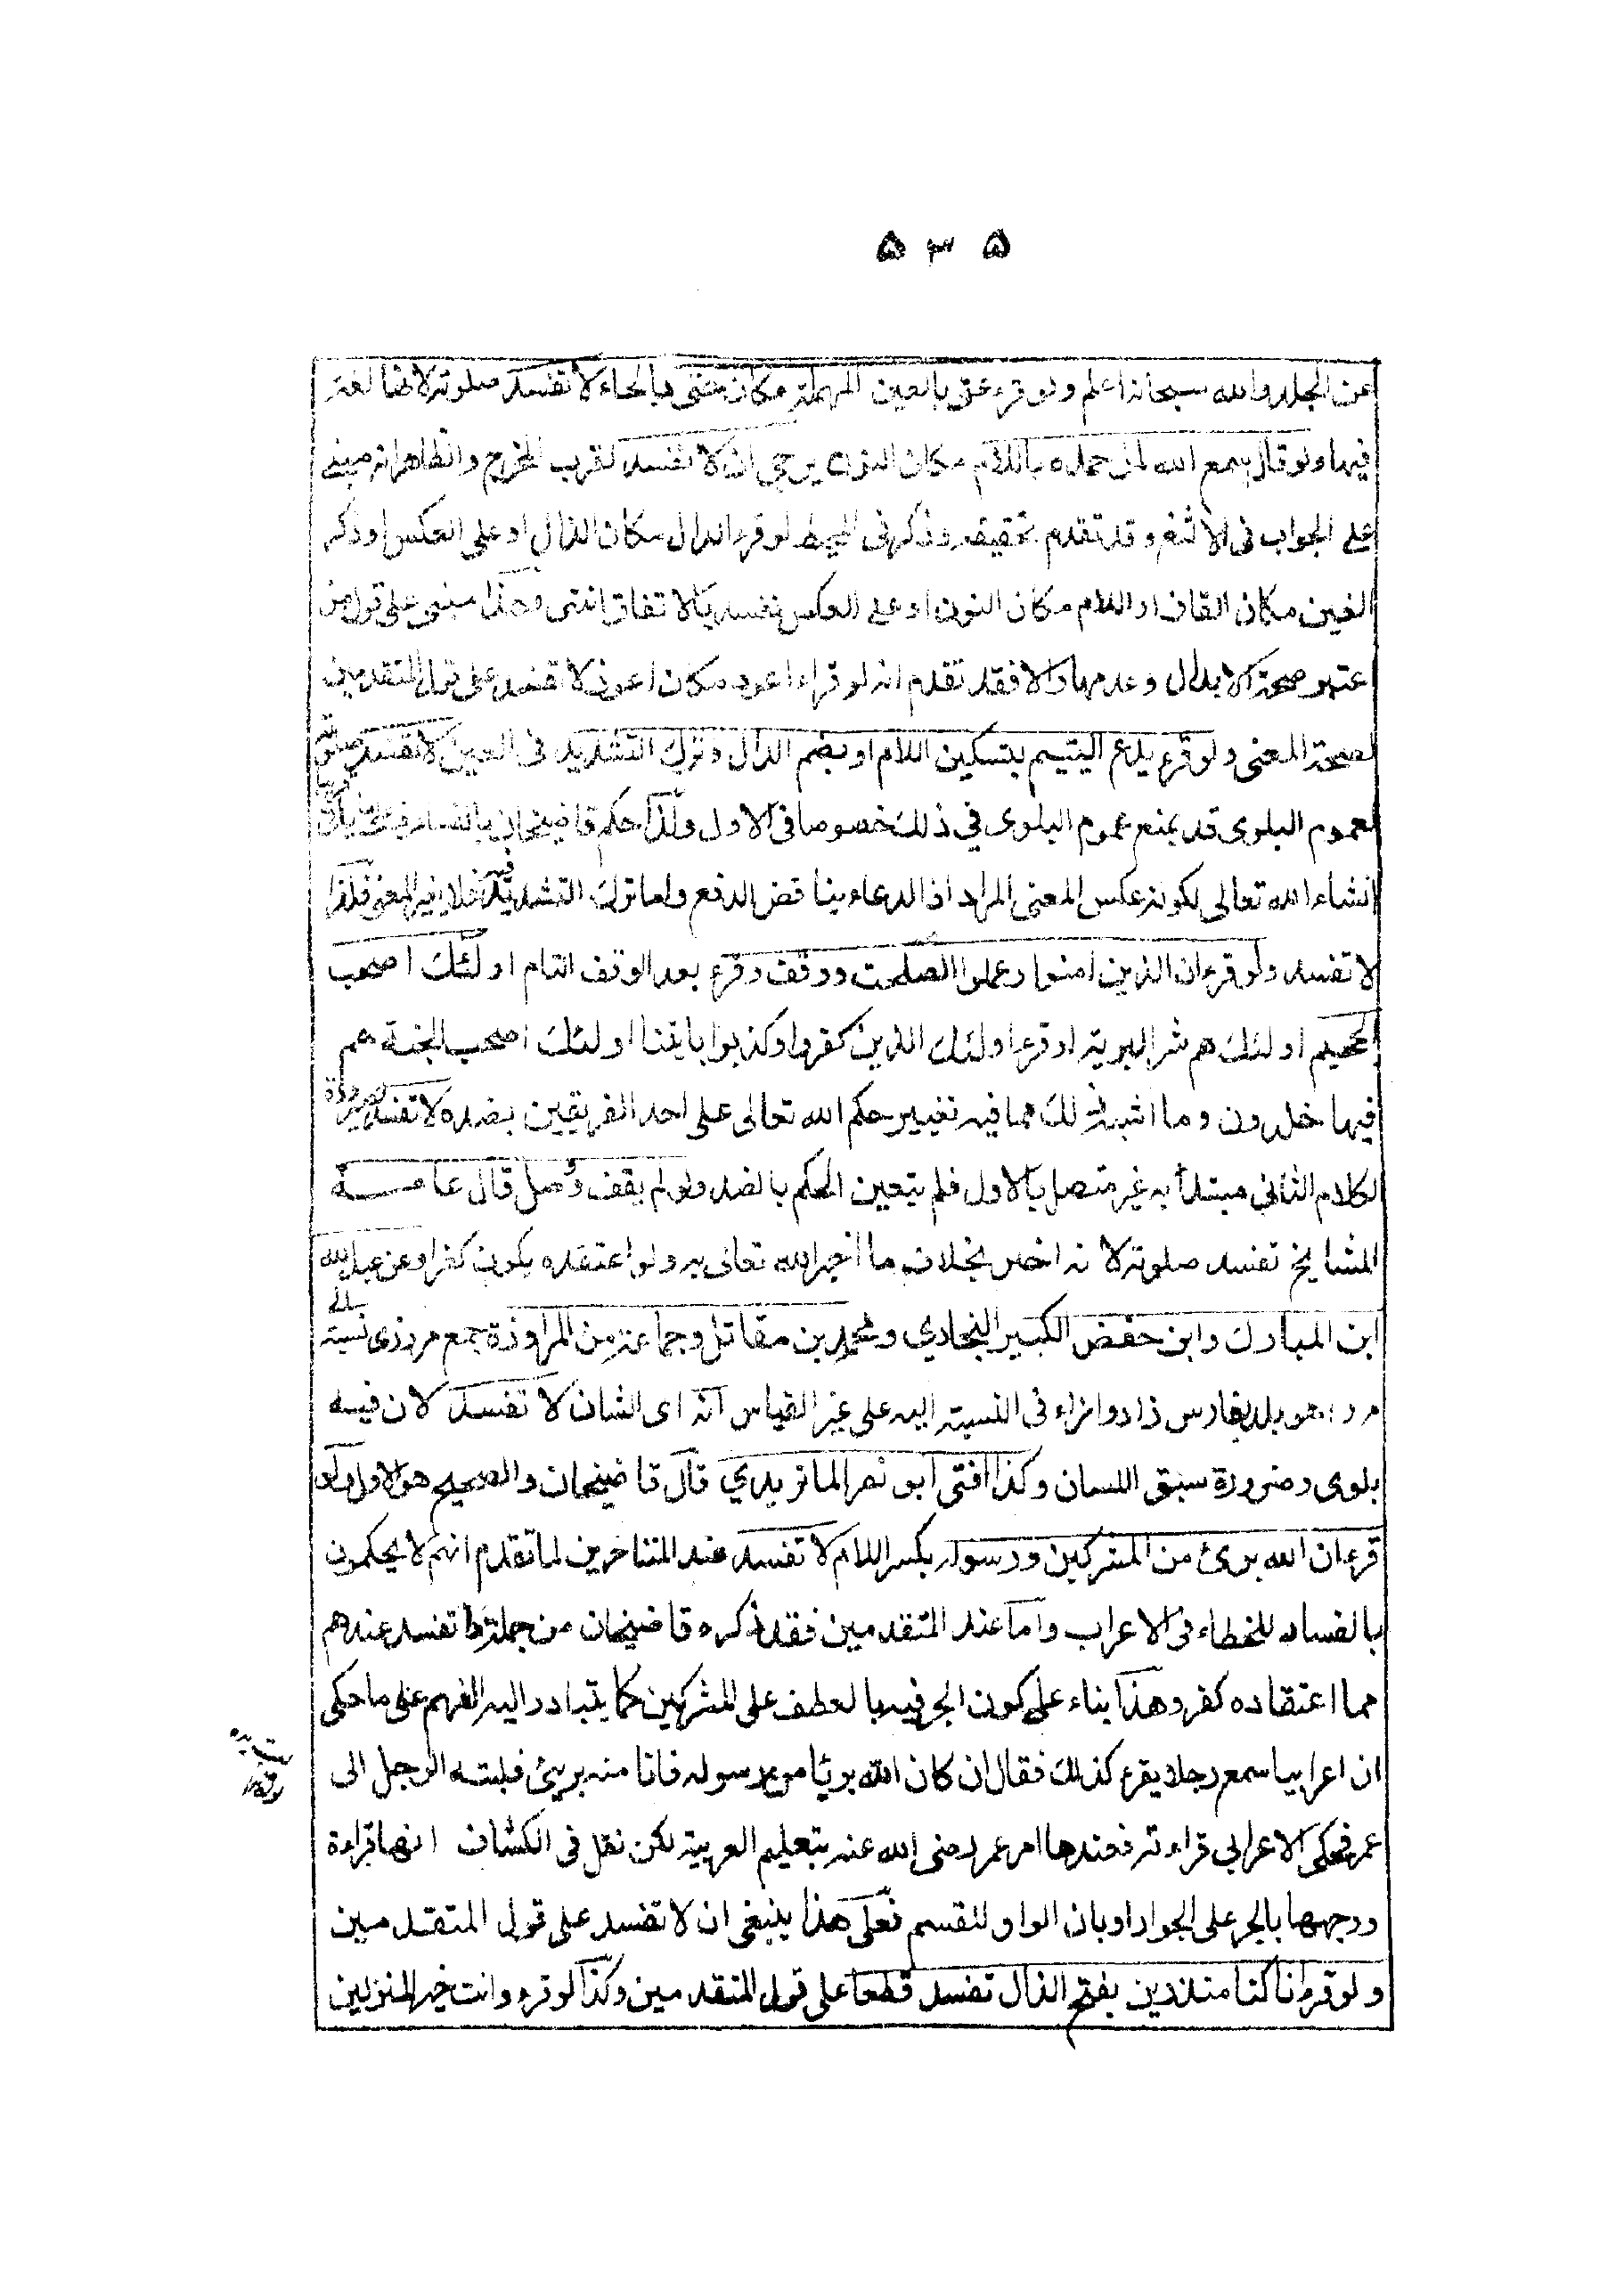 ۵۳۵
عن الجلد والله سبحانه اعلم ولو قرء عتى بالعين المهملة مكان حتى بالحاء لا تفسد صلوته لانها لغة
فيها ولو قال سمع الله لمل حمده باللام مكان النون يرجى ان لا تفسد لقرب المخرج والظاهر انه مبنى
على الجواب فى الالثغ وقد تقدم تحقيقه وذكر فى المحيط لو قرء الدال مكان الذال او على العكس او ذكر
الغين مكان القاف او اللام مكان النون او على العكس تفسد بالاتفاق انتهى وهذا مبنى على قول من
اعتبر صحة الابدال وعدمها والا فقد تقدم انه لو قراء اعود مكان اعوذ لا تفسد على قول المتقدمين
لصحة المعنى ولو قرء يدع اليتيم بتسكين اللام او بضم الدال وترك التشديد فى العين لا تفسد صلوته
لعموم البلوى قد يمنع عموم البلوى في ذلك خصوصا فى الاول ولذا حكم قاضيخان بالفساد
انشاء الله تعالى لكونه عكس المعنى المراد اذ الدعاء يناقض الدفع واما ترك التشديد فيه فلا يغير المعنى فلذا
لا تفسد ولو قرء ان الذين امنوا وعملوا الصلحت ووقف وقرء بعد الوقف التام اولئك اصحب
الجحيم اولئك هم شر البرية او قرء اولئك الذين كفروا وكذبوا بايتنا اولئك اصحب الجنة هم
فيها خلدون وما اشبه ذلك مما فيه تغيير حكم الله تعالى على احد الفريقين بضده لا تفسد لصيرورة
الكلام الثانى مبتدأ به غير متصل بالاول فلم يتعين الحكم بالضد ولو لم يقف ووصل قال عامة
المشايخ تفسد صلوته لانه اخبر بخلاف ما اخبر الله تعالى به ولو اعتقده يكون كفرا وعن عبد الله
ابن المبارك وابن حفض الكبير البخاري ومحمد بن مقاتل وجماعة من المراوزة جمع مروزى نسبة الى
مرو وهو بلد بفارس زادوا الزاء فى النسبة اليه على غير القياس انه اى الشان لا تفسد لان فيه
بلوى وضرورة سبق اللسان وكذا افتى ابو نصر الماتريدي قال قاضيخان والصحيح هو الاول ولو
قرء ان الله برئ من المشركين ورسوله بكسر اللام لا تفسد عند المتاخرين لما تقدم انهم لا يحكمون
بالفساد للخطاء فى الاعراب واما عند المتقدمين فقد ذكره قاضيخان من جملة ما تفسد عندهم
مما اعتقاده كفر وهذا بناء على كون الجر فيه بالعطف على المشركين كما يتبادر اليه الفهم على ما حكى
ان اعرابيا سمع رجلا يقرء كذلك فقال ان كان الله بريئا من رسوله فانا منه بريئ فلبته الرجل الى
عمر فحكى الاعرابي قراءته فعندها امر عمر رضى الله عنه بتعليم العربية لكن نقل فى الكشاف انها قراءة
ووجهها بالجر على الجوار او بان الواو للقسم فعلى هذا ينبغى ان لا تفسد على قول المتقدمين
ولو قرء انا كنا منذرين بفتح الذال تفسد قطعا على قول المتقدمين وكذا لو قرء وانت خير المنزلين